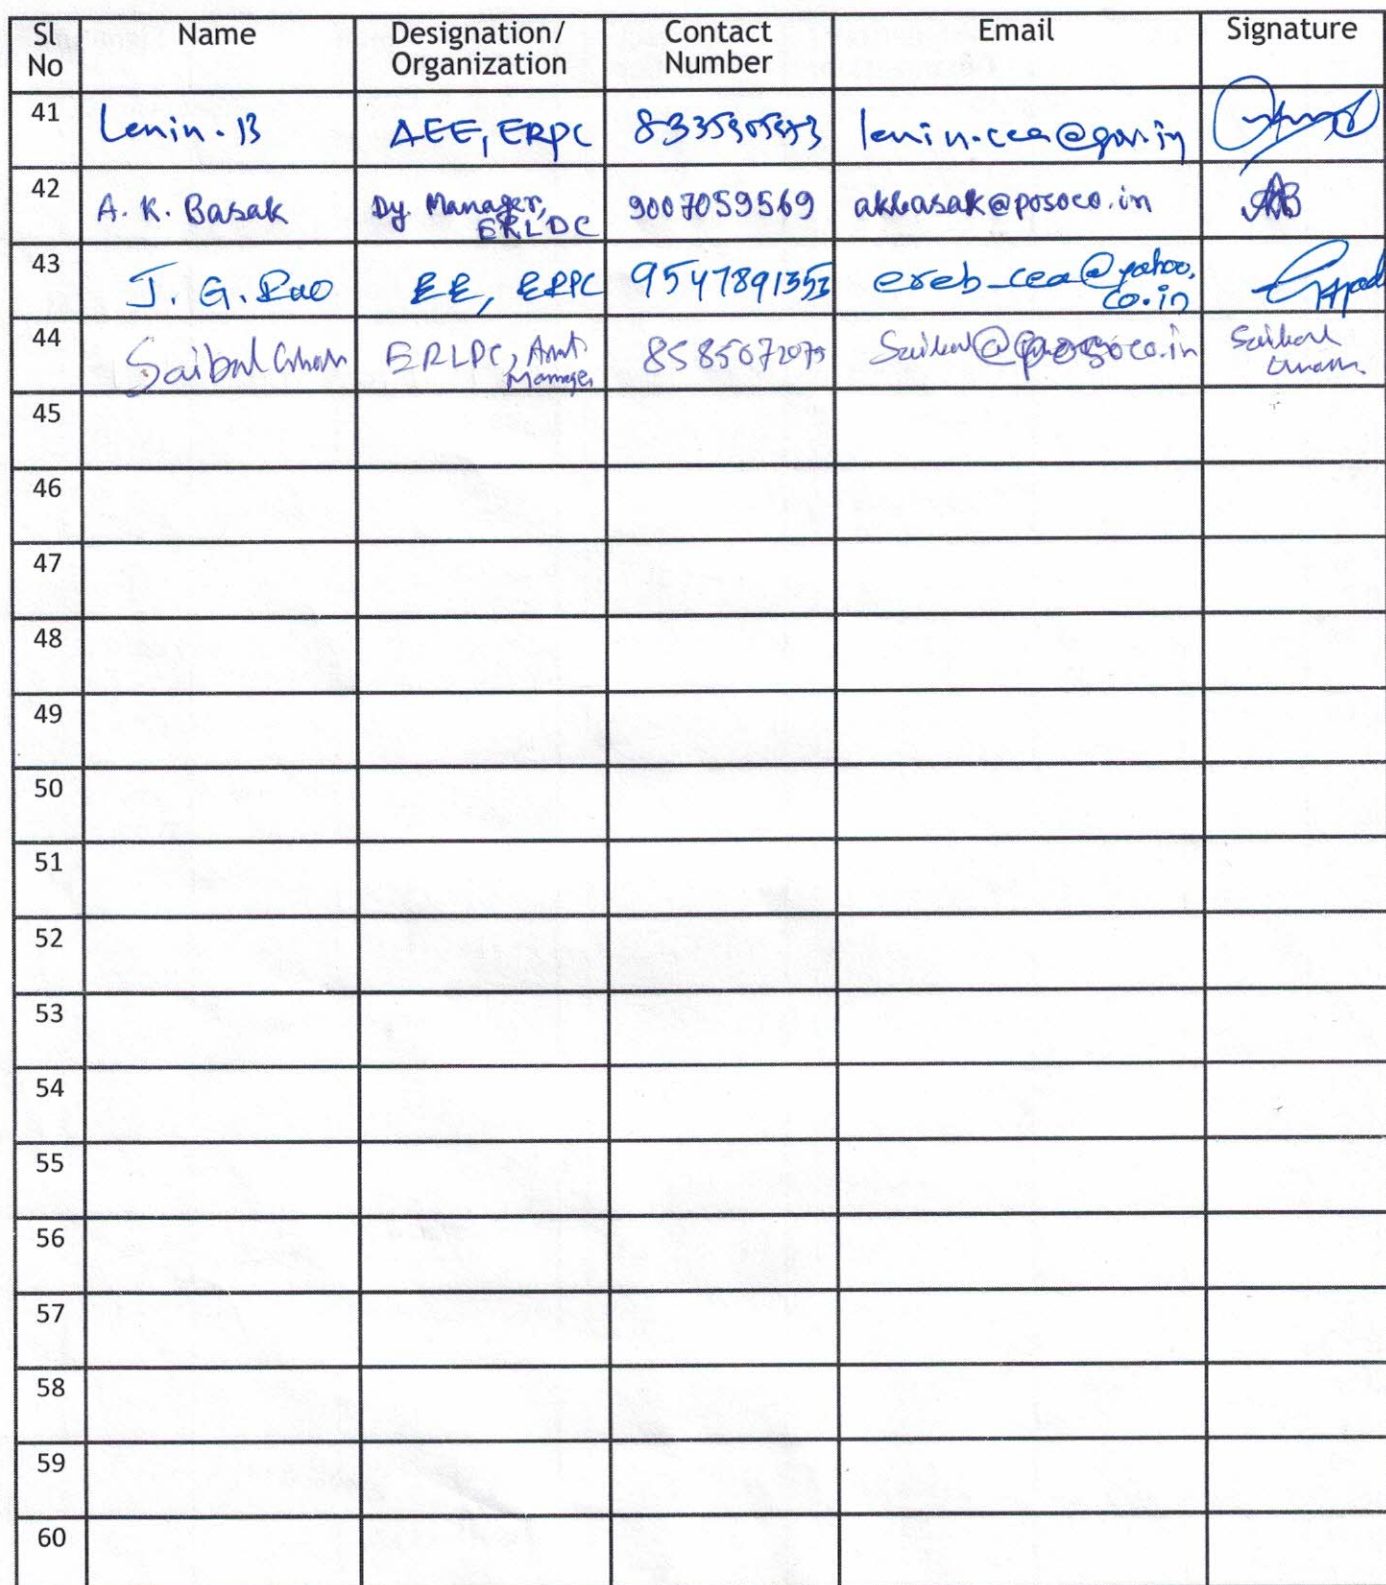 Sl No Name Designation/ Organization Contact Number Email Signature
41 Lenin. B AEE, ERPC lenin.cea@gov.in
42 A. K. Basak Dy. Manager, ERLDC 9007059569 akbasak@posoco.in AB
43 J. G. Rao EE, ERPC 9547891353 ereb_cea@yahoo.co.in
44 Saibal Ghosh ERLDC, Manager 8585072079 Saibal@posoco.in Saibal
45
46
47
48
49
50
51
52
53
54
55
56
57
58
59
60